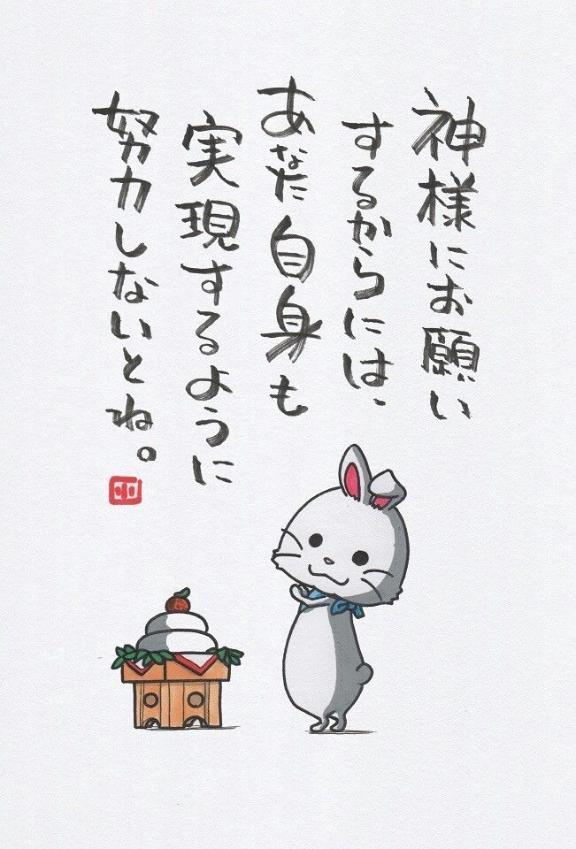 神様にお願い
するからには、
あなた自身も
実現するように
努力しないとね。